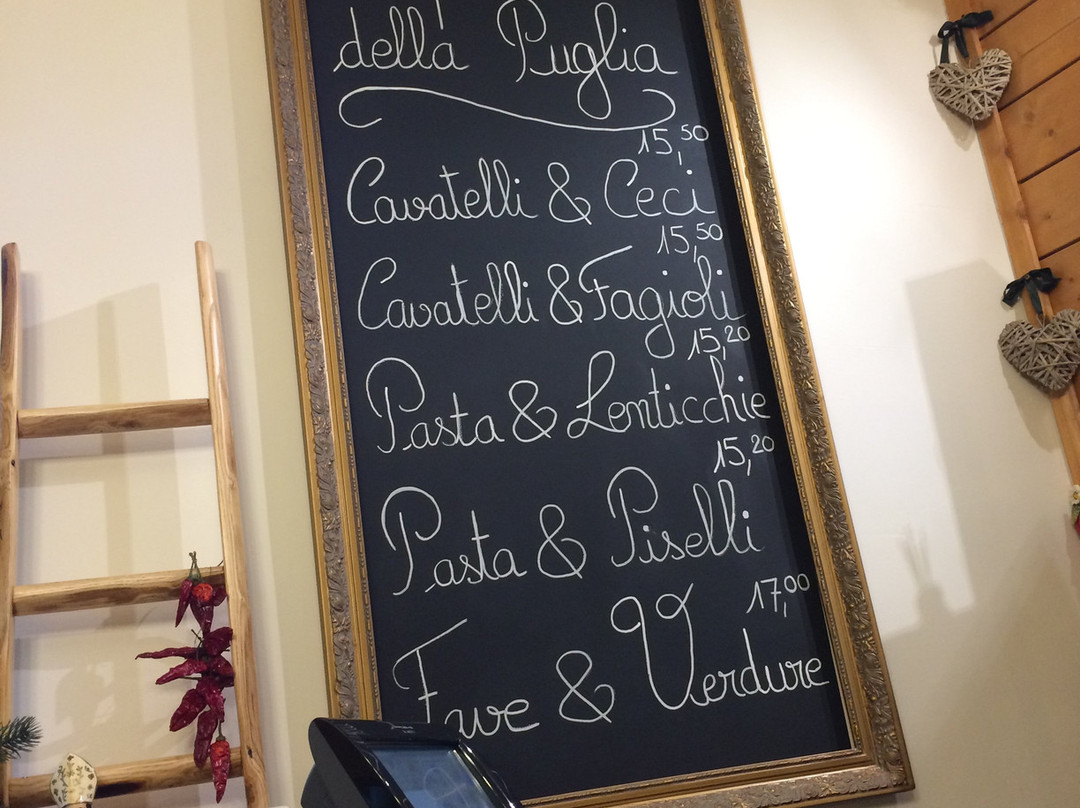 della Puglia
15,50
Cavatelli & Ceci
15,50
Cavatelli & Fagioli
15,20
Pasta & Lenticchie
15,20
Pasta & Piselli
17,00
Fave & Verdure